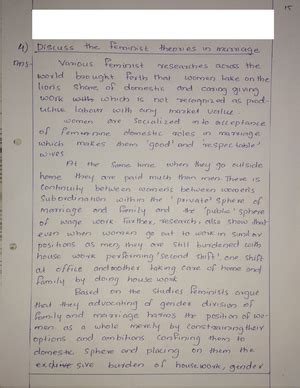 15
4) Discuss the feminist theories in marriage
Ans- Various feminist researches across the
world brought forth that women take on the
lion's share of domestic and caring giving
work with which is not recognized as prod-
uctive labour with any market value.
women are socialized into acceptance
of femennine domestic roles in marriage
which makes them 'good' and respectable'
wives
At the same time, when they go outside
home they are paid much than men. There is
continuity between women's between women's
subordination within the 'private' sphere of
marriage and family and the 'public' sphere
of wage work. Further, research also show that
even when women go out to work in similar
positions as men, they are still burdened with
house work performing 'second shift', one shift
at office and other taking care of home and
family by doing house work
Based on the studies feminists argue
that they advocating of gender division of
family and marriage harms the position of wo-
men as a whole merely by constraining their
options and ambitions confining them to
domestic sphere and placing on them the
exclusive burden of housework, gender